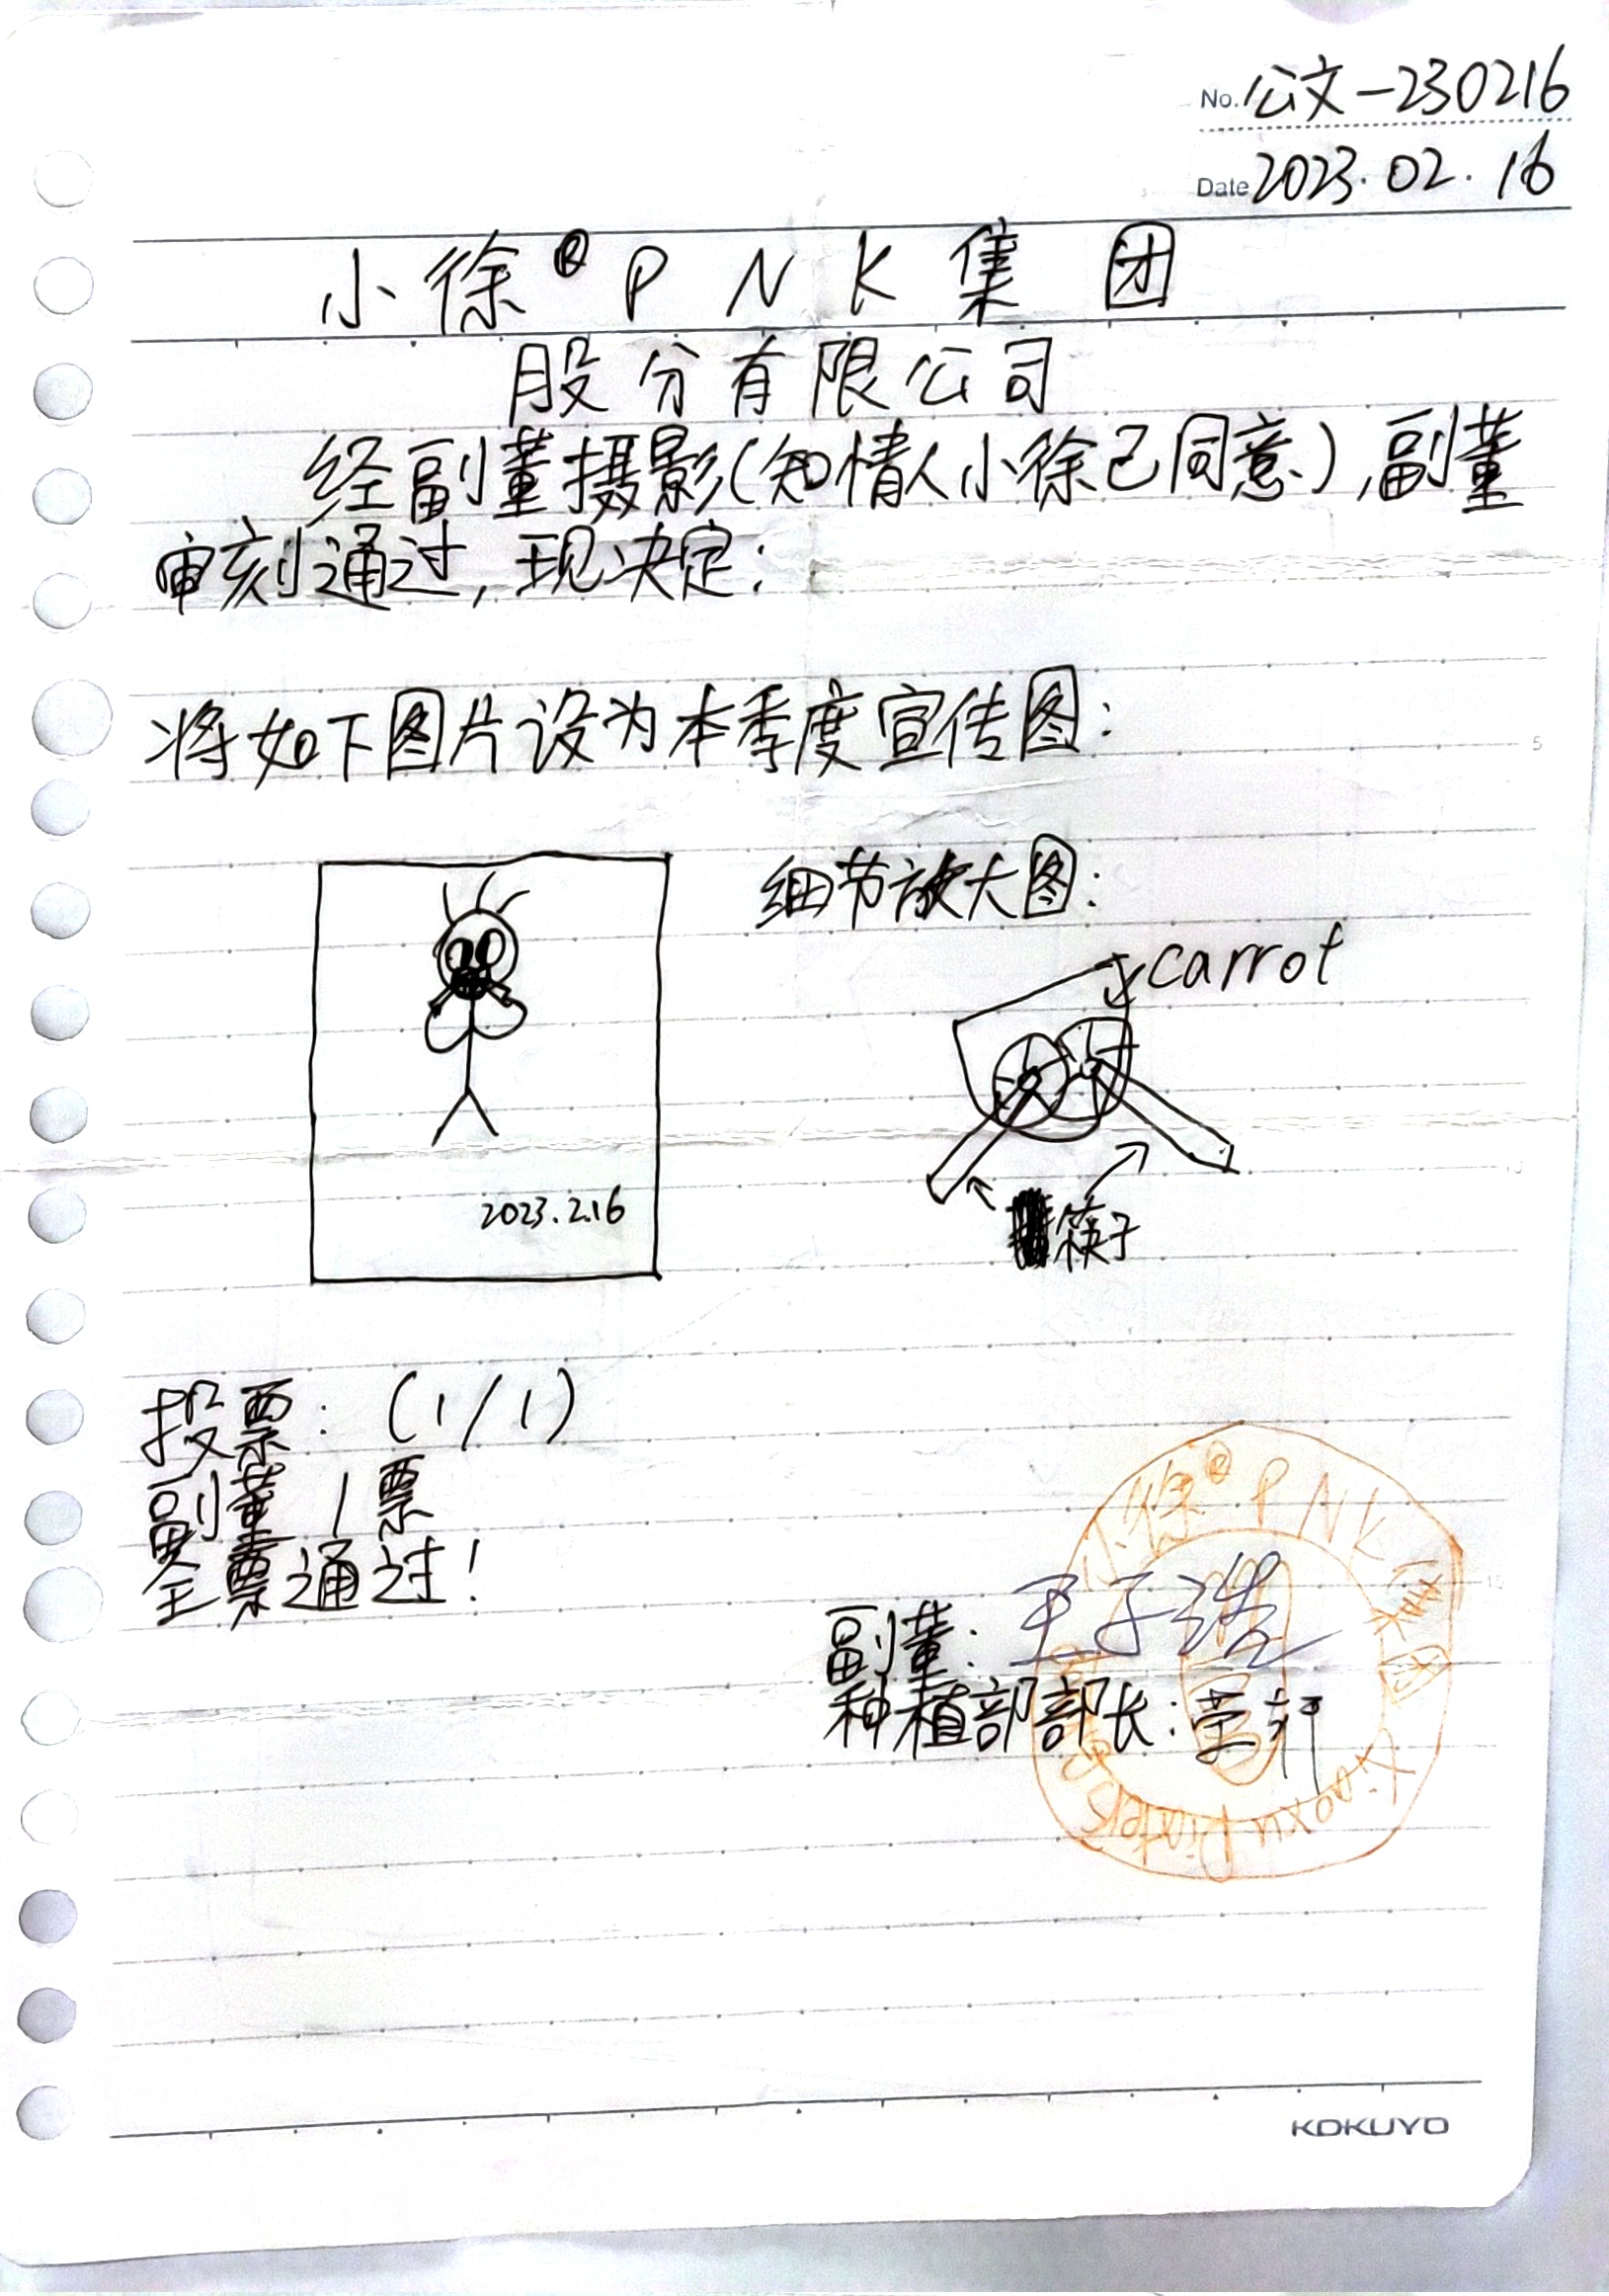 No. 公文-230216
Date 2023.02.16
小徐®PNK集团
股分有限公司
经副董摄影(知情人小徐己同意),副董
审刻通过,现决定:
将如下图片设为本季度宣传图:
细节放大图:
carrot
筷子
2023.2.16
投票: (1/1)
副董 1票
全票通过!
小徐®PNK集团
副董: 王子浩
种植部部长:
Xiaoxu
5
10
15
KOKUYO